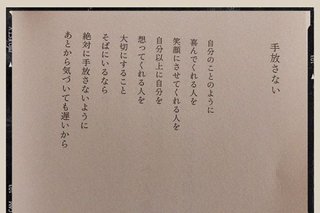 手放さない
自分のことのように
喜んでくれる人を
笑顔にさせてくれる人を
自分以上に自分を
想ってくれる人を
大切にすること
そばにいるなら
絶対に手放さないように
あとから気づいても遅いから